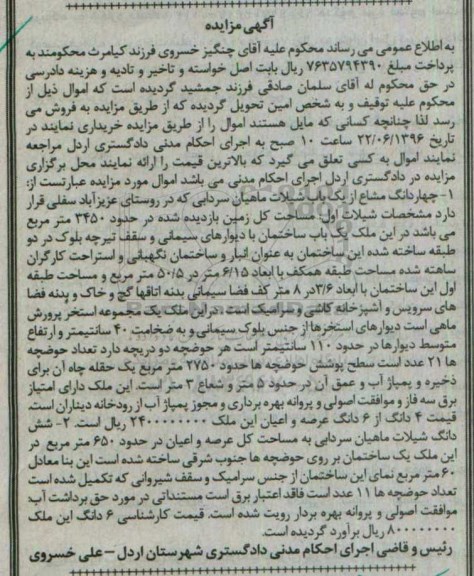 آگهی مزایده
به اطلاع عمومی می رساند محکوم علیه آقای چنگیز خسروی فرزند کیامرث محکومند به
پرداخت مبلغ ۷۶۳۵۷۹۴۳۹۰ ریال بابت اصل خواسته و تاخیر و تادیه و هزینه دادرسی
در حق محکوم له آقای سلمان صادقی فرزند جمشید گردیده است که اموال ذیل از
محکوم علیه توقیف و به شخص امین تحویل گردیده که از طریق مزایده به فروش می
رسد لذا چنانچه کسانی که مایل هستند اموال را از طریق مزایده خریداری نمایند در
تاریخ ۲۲/۰۶/۱۳۹۶ ساعت ۱۰ صبح به اجرای احکام مدنی دادگستری اردل مراجعه
نمایند اموال به کسی تعلق می گیرد که بالاترین قیمت را ارائه نمایند محل برگزاری
مزایده در دادگستری اردل اجرای احکام مدنی می باشد اموال مورد مزایده عبارتست از:
۱- چهاردانگ مشاع از یک باب شیلات ماهیان سردابی که در روستای عزیزآباد سفلی قرار
دارد مشخصات شیلات اول: مساحت کل زمین بازدیده شده در حدود ۳۴۵۰ متر مربع
می باشد در این ملک یک باب ساختمان با دیوارهای سیمانی و سقف تیرچه بلوک در دو
طبقه ساخته شده این ساختمان به عنوان انبار و ساختمان نگهبانی و استراحت کارگران
ساهته شده مساحت طبقه همکف با ابعاد ۶/۱۵ متر در ۵۰/۵ متر مربع و مساحت طبقه
اول این ساختمان با ابعاد ۳/۶در ۸ متر کف فضا سیمانی بدنه اتاقها گچ و خاک و بدنه فضا
های سرویس و آشپزخانه کاشی و سرامیک است .در این ملک یک مجموعه استخر پرورش
ماهی است دیوارهای استخرها از جنس بلوک سیمانی و به ضخامت ۴۰ سانتیمتر و ارتفاع
متوسط دیوارها در حدود ۱۱۰ سانتیمتر است هر حوضچه دو دریچه دارد تعداد حوضچه
ها ۲۱ عدد است سطح پوشش حوضچه ها حدود ۲۷۵۰ متر مربع یک حقله چاه آن برای
ذخیره و پمپاژ آب و عمق آن در حدود ۵ متر و شعاع ۳ متر است. این ملک دارای امتیاز
برق سه فاز و موافقت اصولی و پروانه بهره برداری و مجوز پمپاژ آب از رودخانه دیناران است.
قیمت ۴ دانگ از ۶ دانگ عرصه و اعیان این ملک ۲۴۰۰۰۰۰۰۰۰ ریال است. ۲- شش
دانگ شیلات ماهیان سردابی به مساحت کل عرصه و اعیان در حدود ۶۵۰ متر مربع در
این ملک یک ساختمان بر روی حوضچه ها جنوب شرقی ساخته شده است این بنا معادل
۶۰ متر مربع نمای این ساختمان از جنس سرامیک و سقف شیروانی که تکمیل شده است
تعداد حوضچه ها ۱۱ عدد است فاقد اعتبار برق است مستنداتی در مورد حق برداشت آب
موافقت اصولی و پروانه بهره بردار رویت شده است. قیمت کارشناسی ۶ دانگ این ملک
۸۰۰۰۰۰۰۰۰ ریال برآورد گردیده است.
رئیس و قاضی اجرای احکام مدنی دادگستری شهرستان اردل – علی خسروی